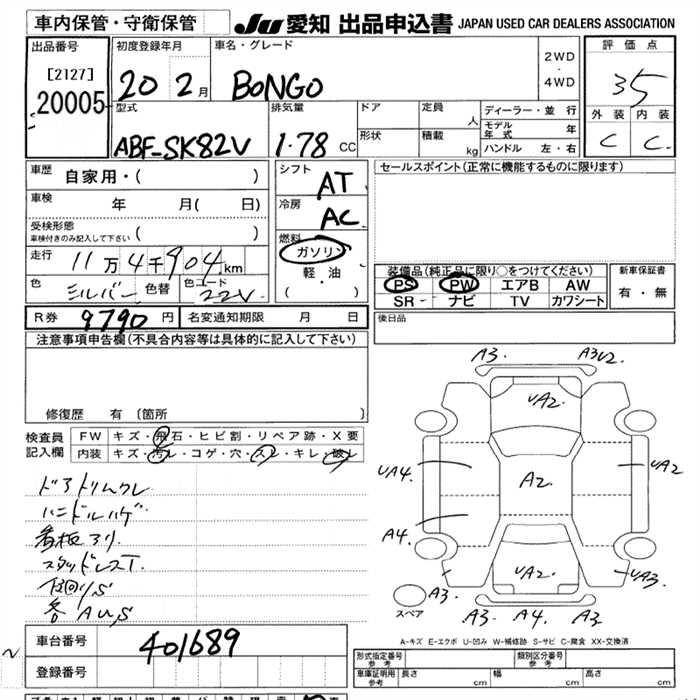 車内保管・守衛保管
JU 愛知 出品申込書 JAPAN USED CAR DEALERS ASSOCIATION
出品番号
[2127]
20005
初度登録年月
20 2月
車名・グレード
BONGO
2WD
・
4WD
評価点
3.5
外装 内装
C C
型式
ABF-SK82V
排気量
1.78 CC
ドア
形状
定員
人
積載
kg
ディーラー・並行
モデル年式 年
ハンドル 左・右
車歴
自家用・( )
車検
年 月( 日)
受検形態
車検付きのみ記入して下さい
( )
走行
11万4千904km
色
シルバー
色替
色コード
22V
シフト
AT
冷房
AC
燃料
ガソリン
軽・油
( )
セールスポイント(正常に機能するものに限ります)
装備品(純正品に限り○をつけてください)
PS PW エアB AW
SR ナビ TV カワシート
新車保証書
有・無
R券 9790円 名変通知期限 月 日
後日品
注意事項申告欄(不具合内容等は具体的に記入して下さい)
修復歴 有 〔箇所 〕
検査員
記入欄
FW キズ・飛石・ヒビ割・リペア跡・X要
内装 キズ・汚レ・コゲ・穴・スレ・キレ・破レ
ドアトリムクレ
ハンドルハゲ
看板アリ
スタッドレスT.
各AU,S
A3. A3U2.
UA2.
UA4. A2. UA2
A4.
UA2.
A3. UA3.
A3 A4. A3.
スペア
A-キズ E-エクボ U-凹み W-補修跡 S-サビ C-腐食 XX-交換済
車台番号 401689
登録番号
型式指定番号
参考
類別区分番号
参考
車庫証明用
参考
長さ cm 幅 cm 高さ cm